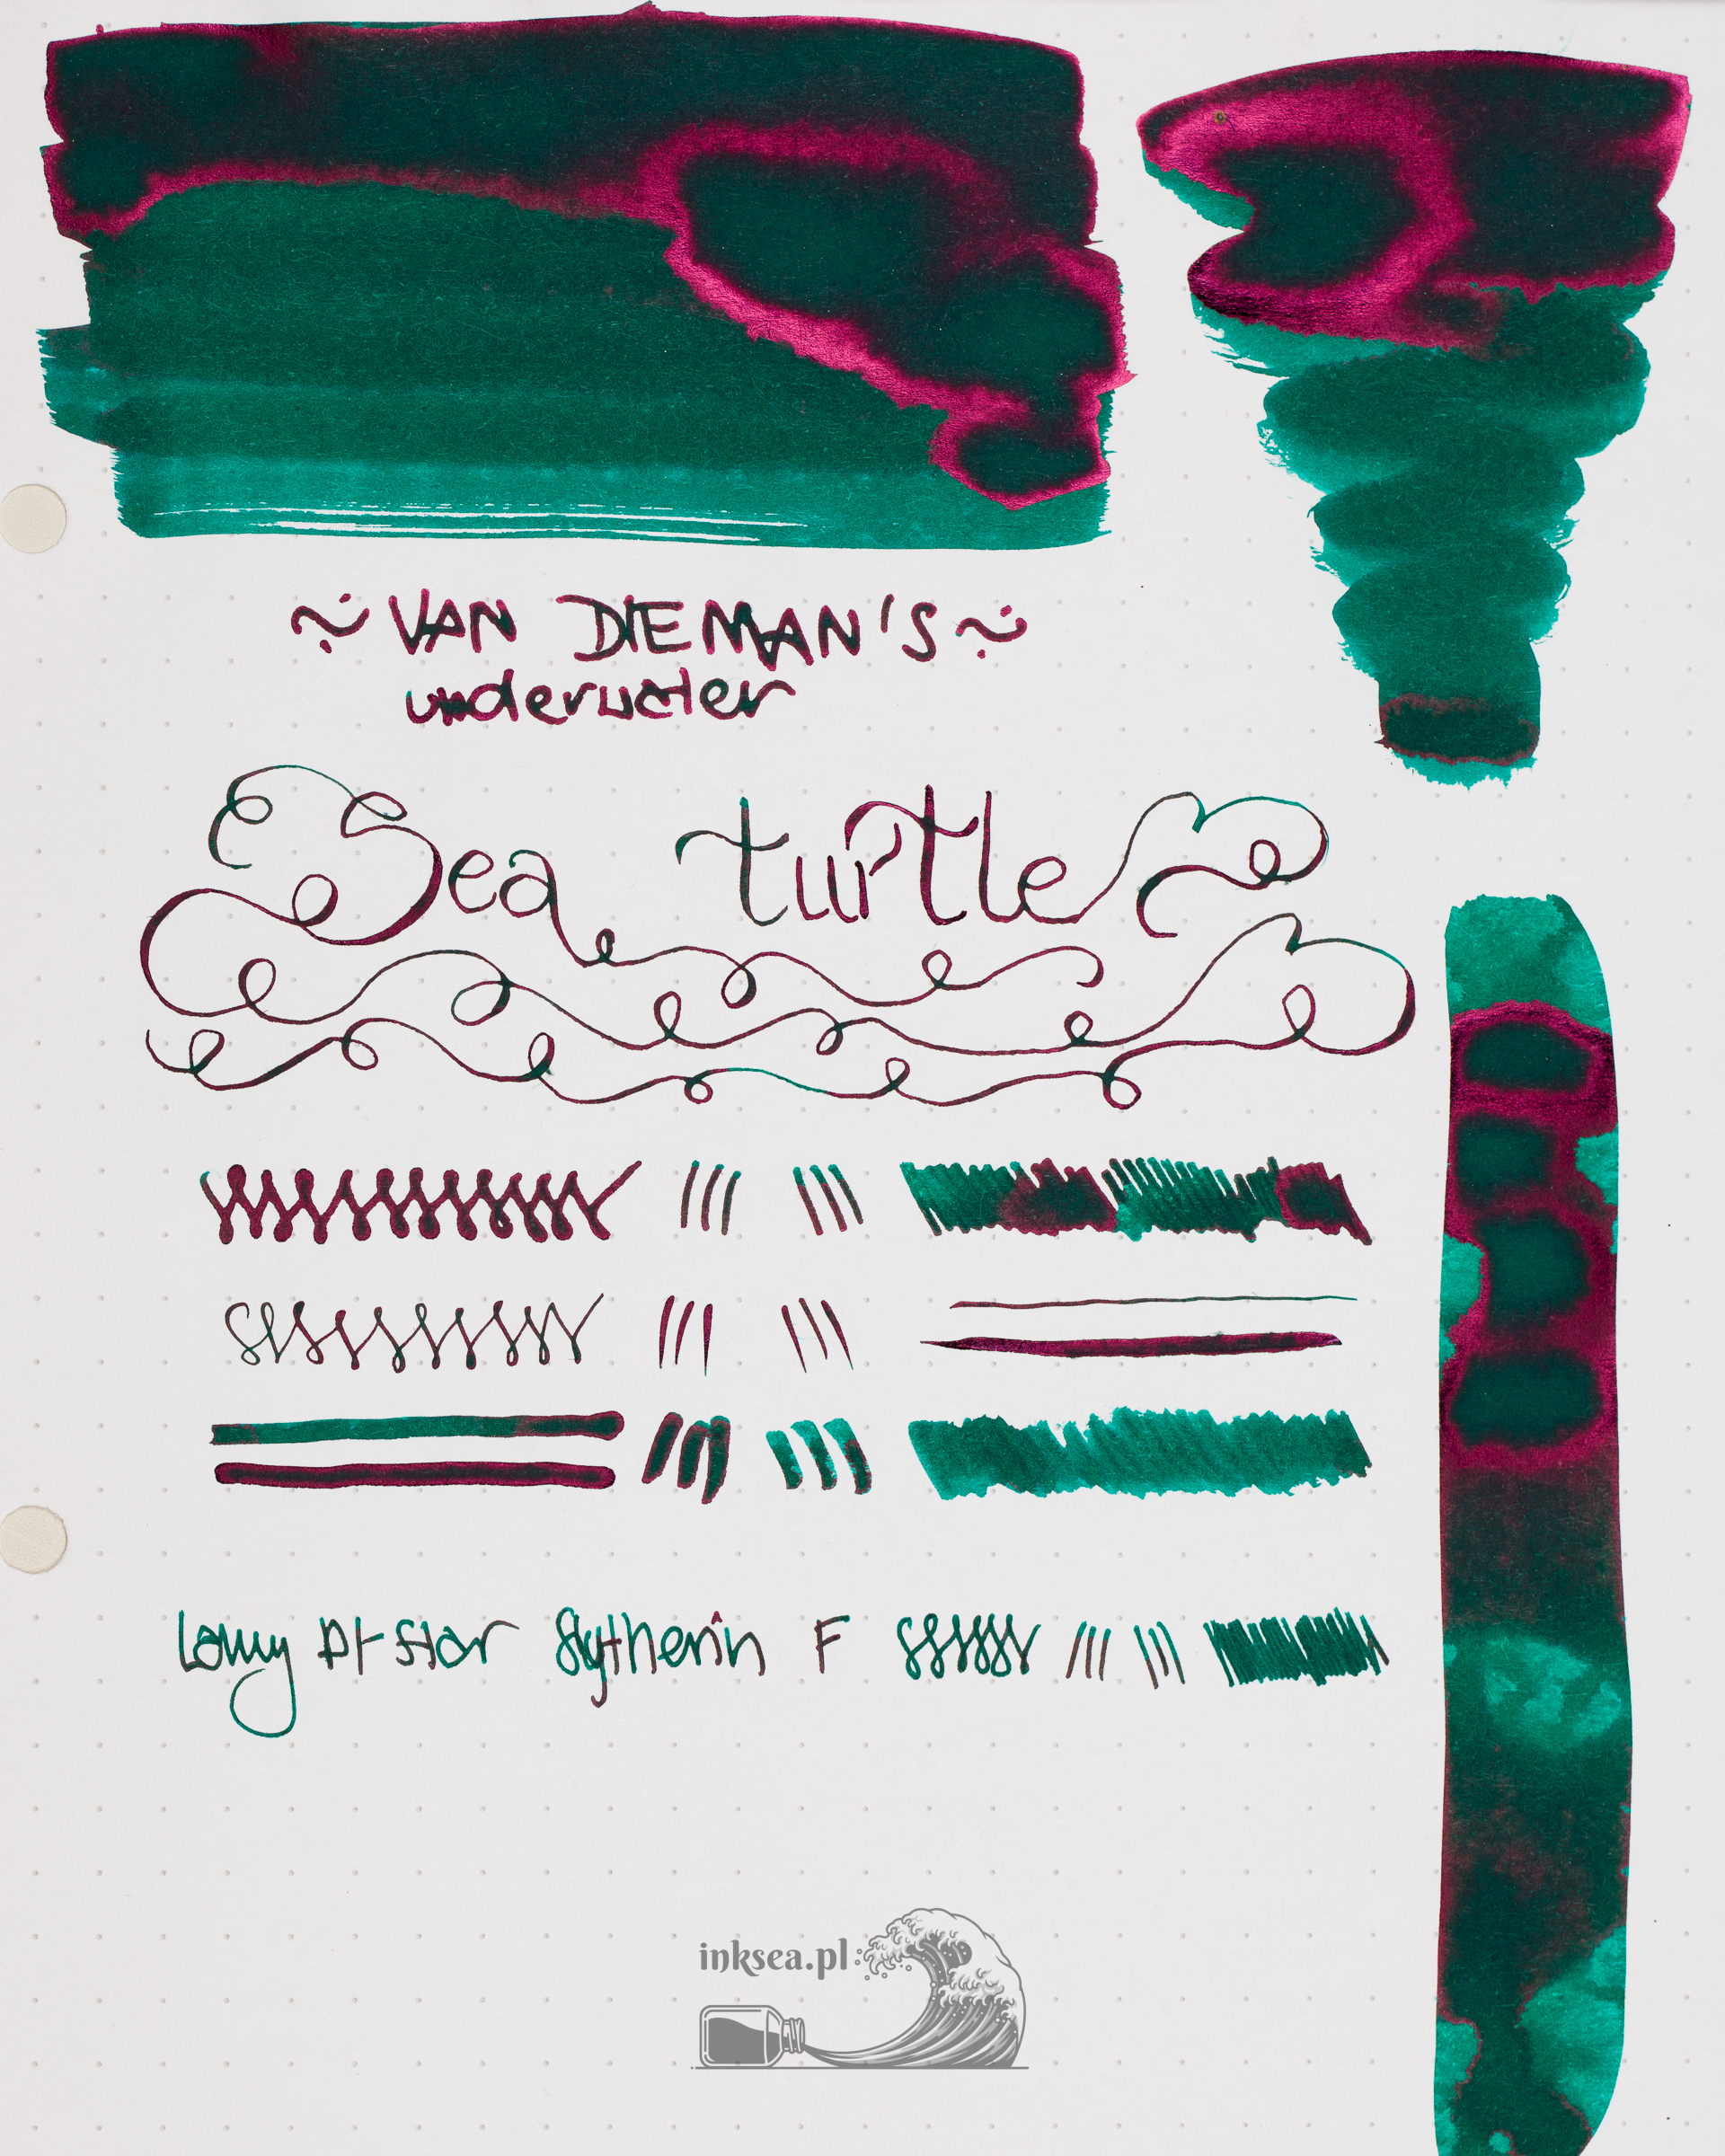 ~ VAN DIEMAN'S ~
underwater
Sea turtle
Lamy Al-star Slytherin F
inksea.pl